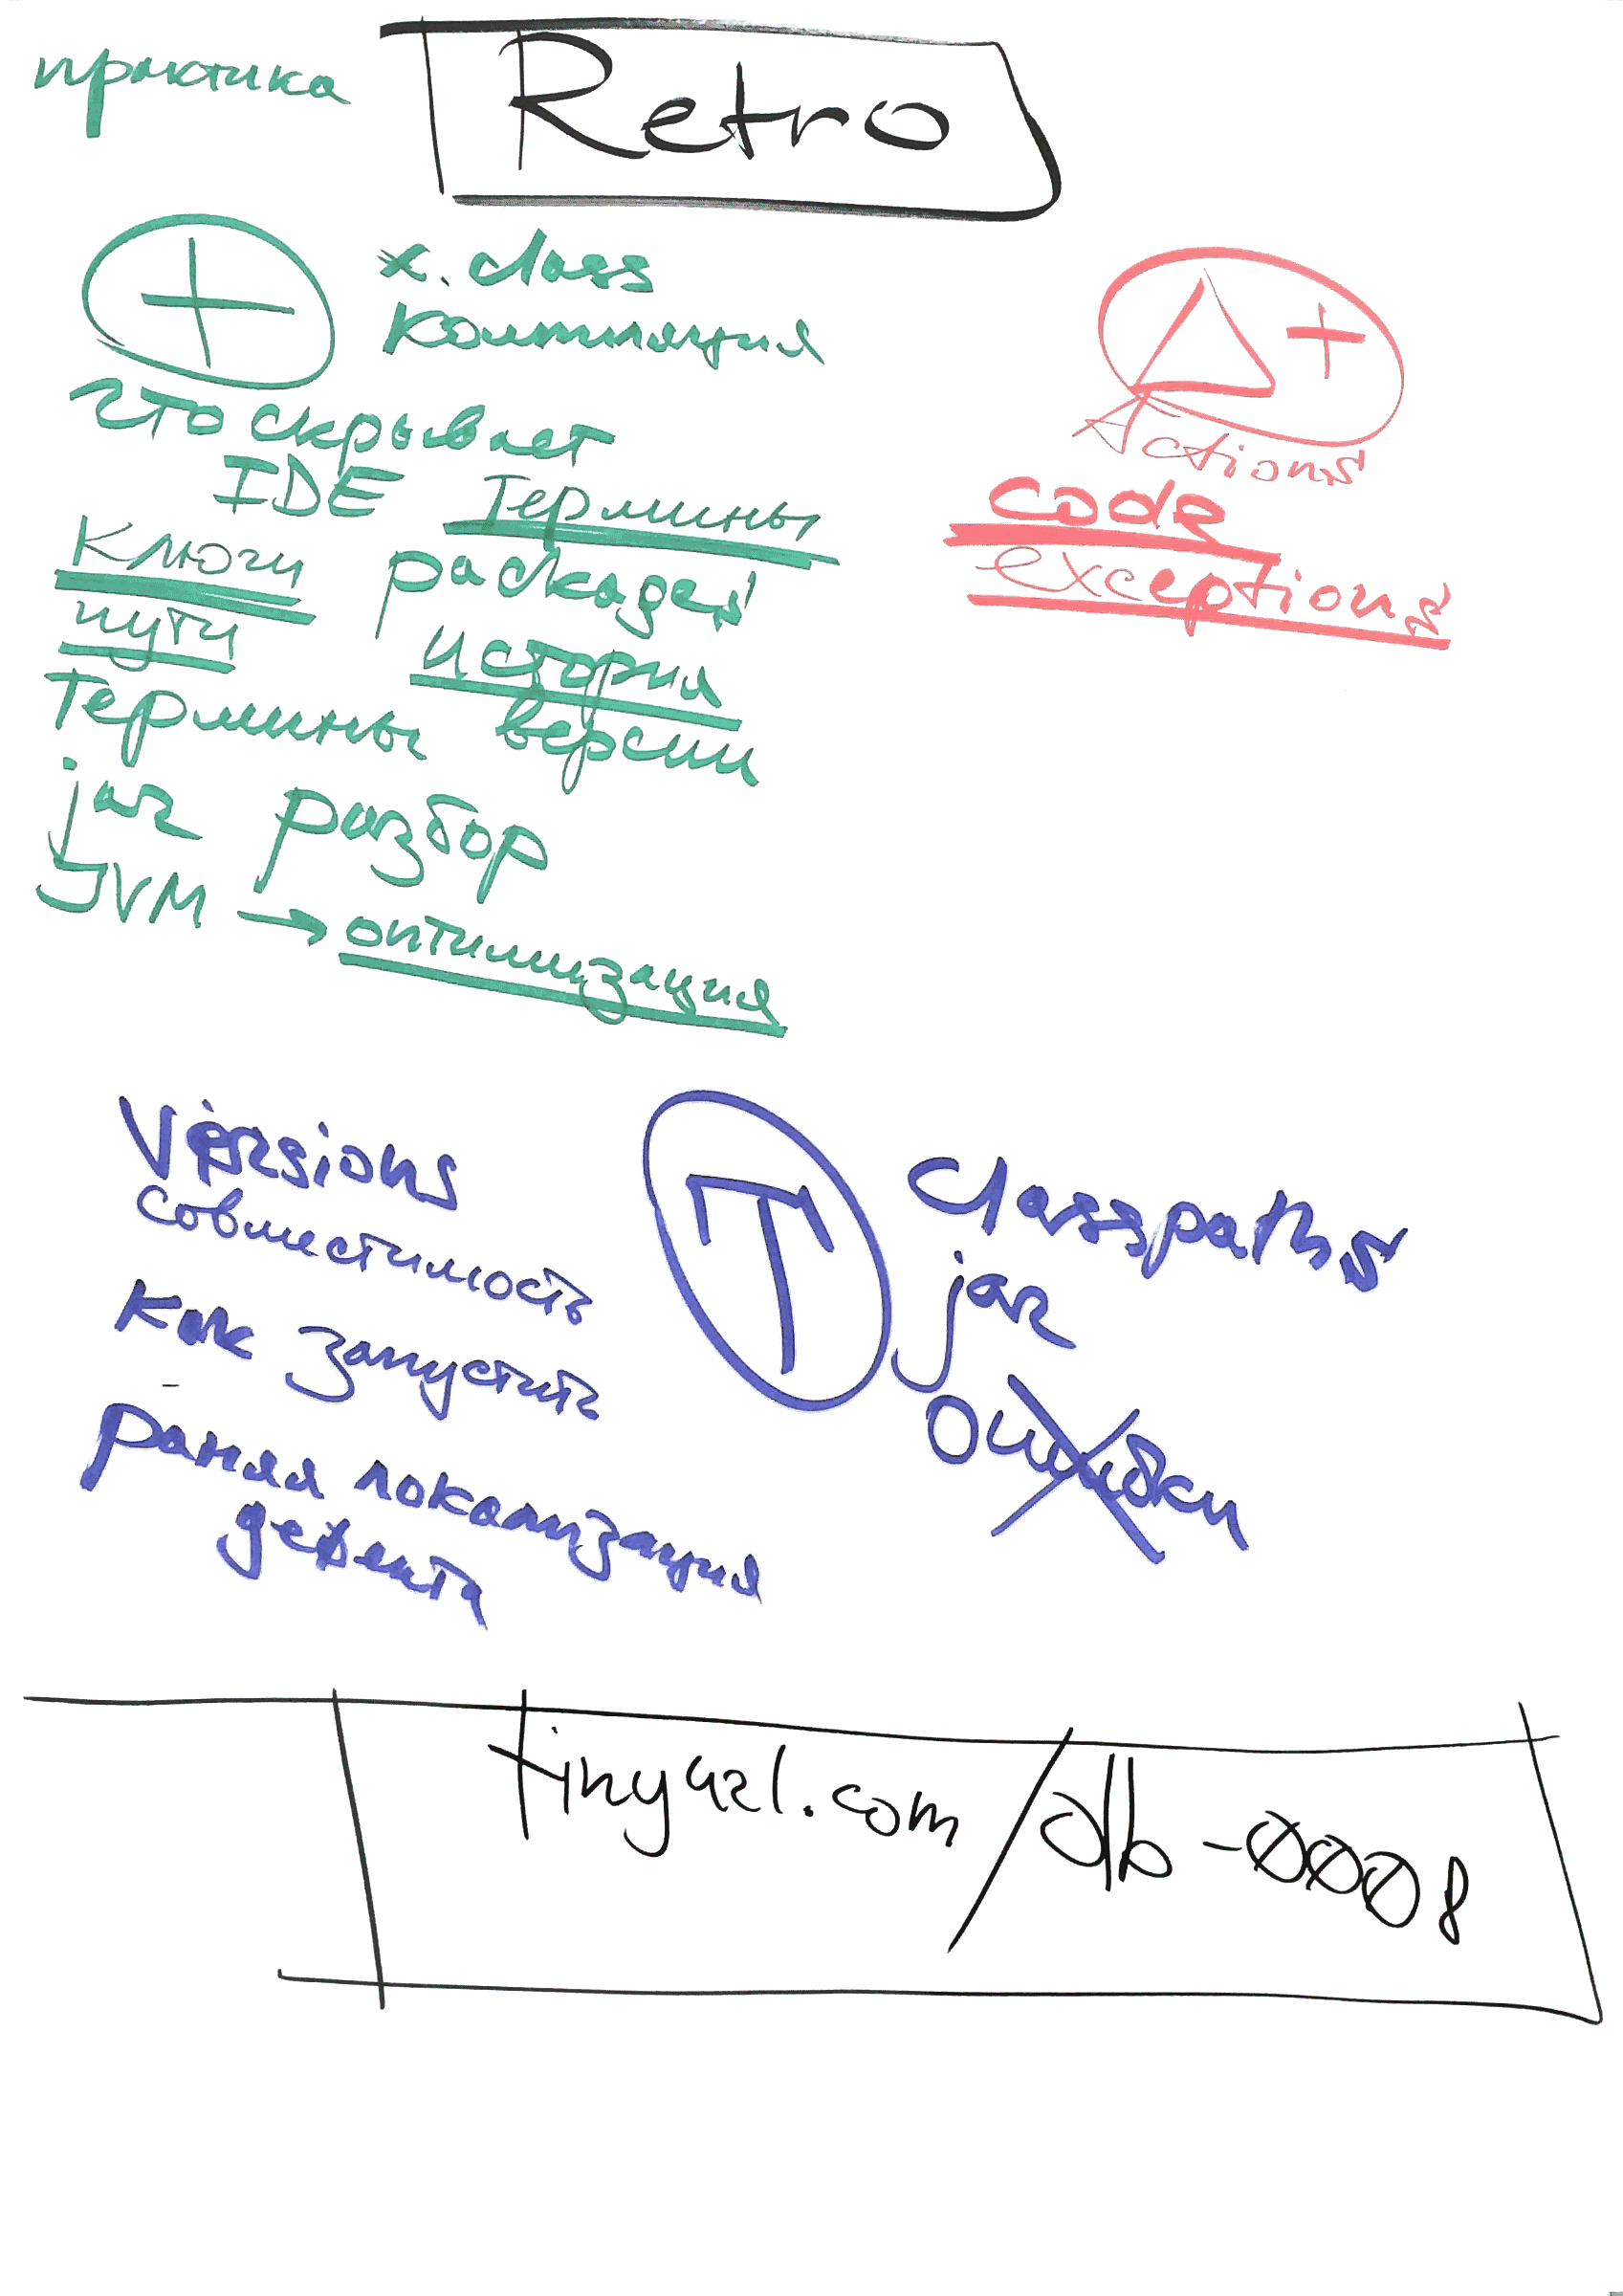 практика
Retro
+
*.class
компиляция
что скрывает
IDE
Термины
Ключи
packages
пути
история
Термины
версии
jar разбор
JVM → оптимизация
Δ +
Actions
code
exceptions
Versions
совместимость
как запустить
ранняя локализация
дефекта
T
Classpaths
jar
ошибки
tinyurl.com/db-0008